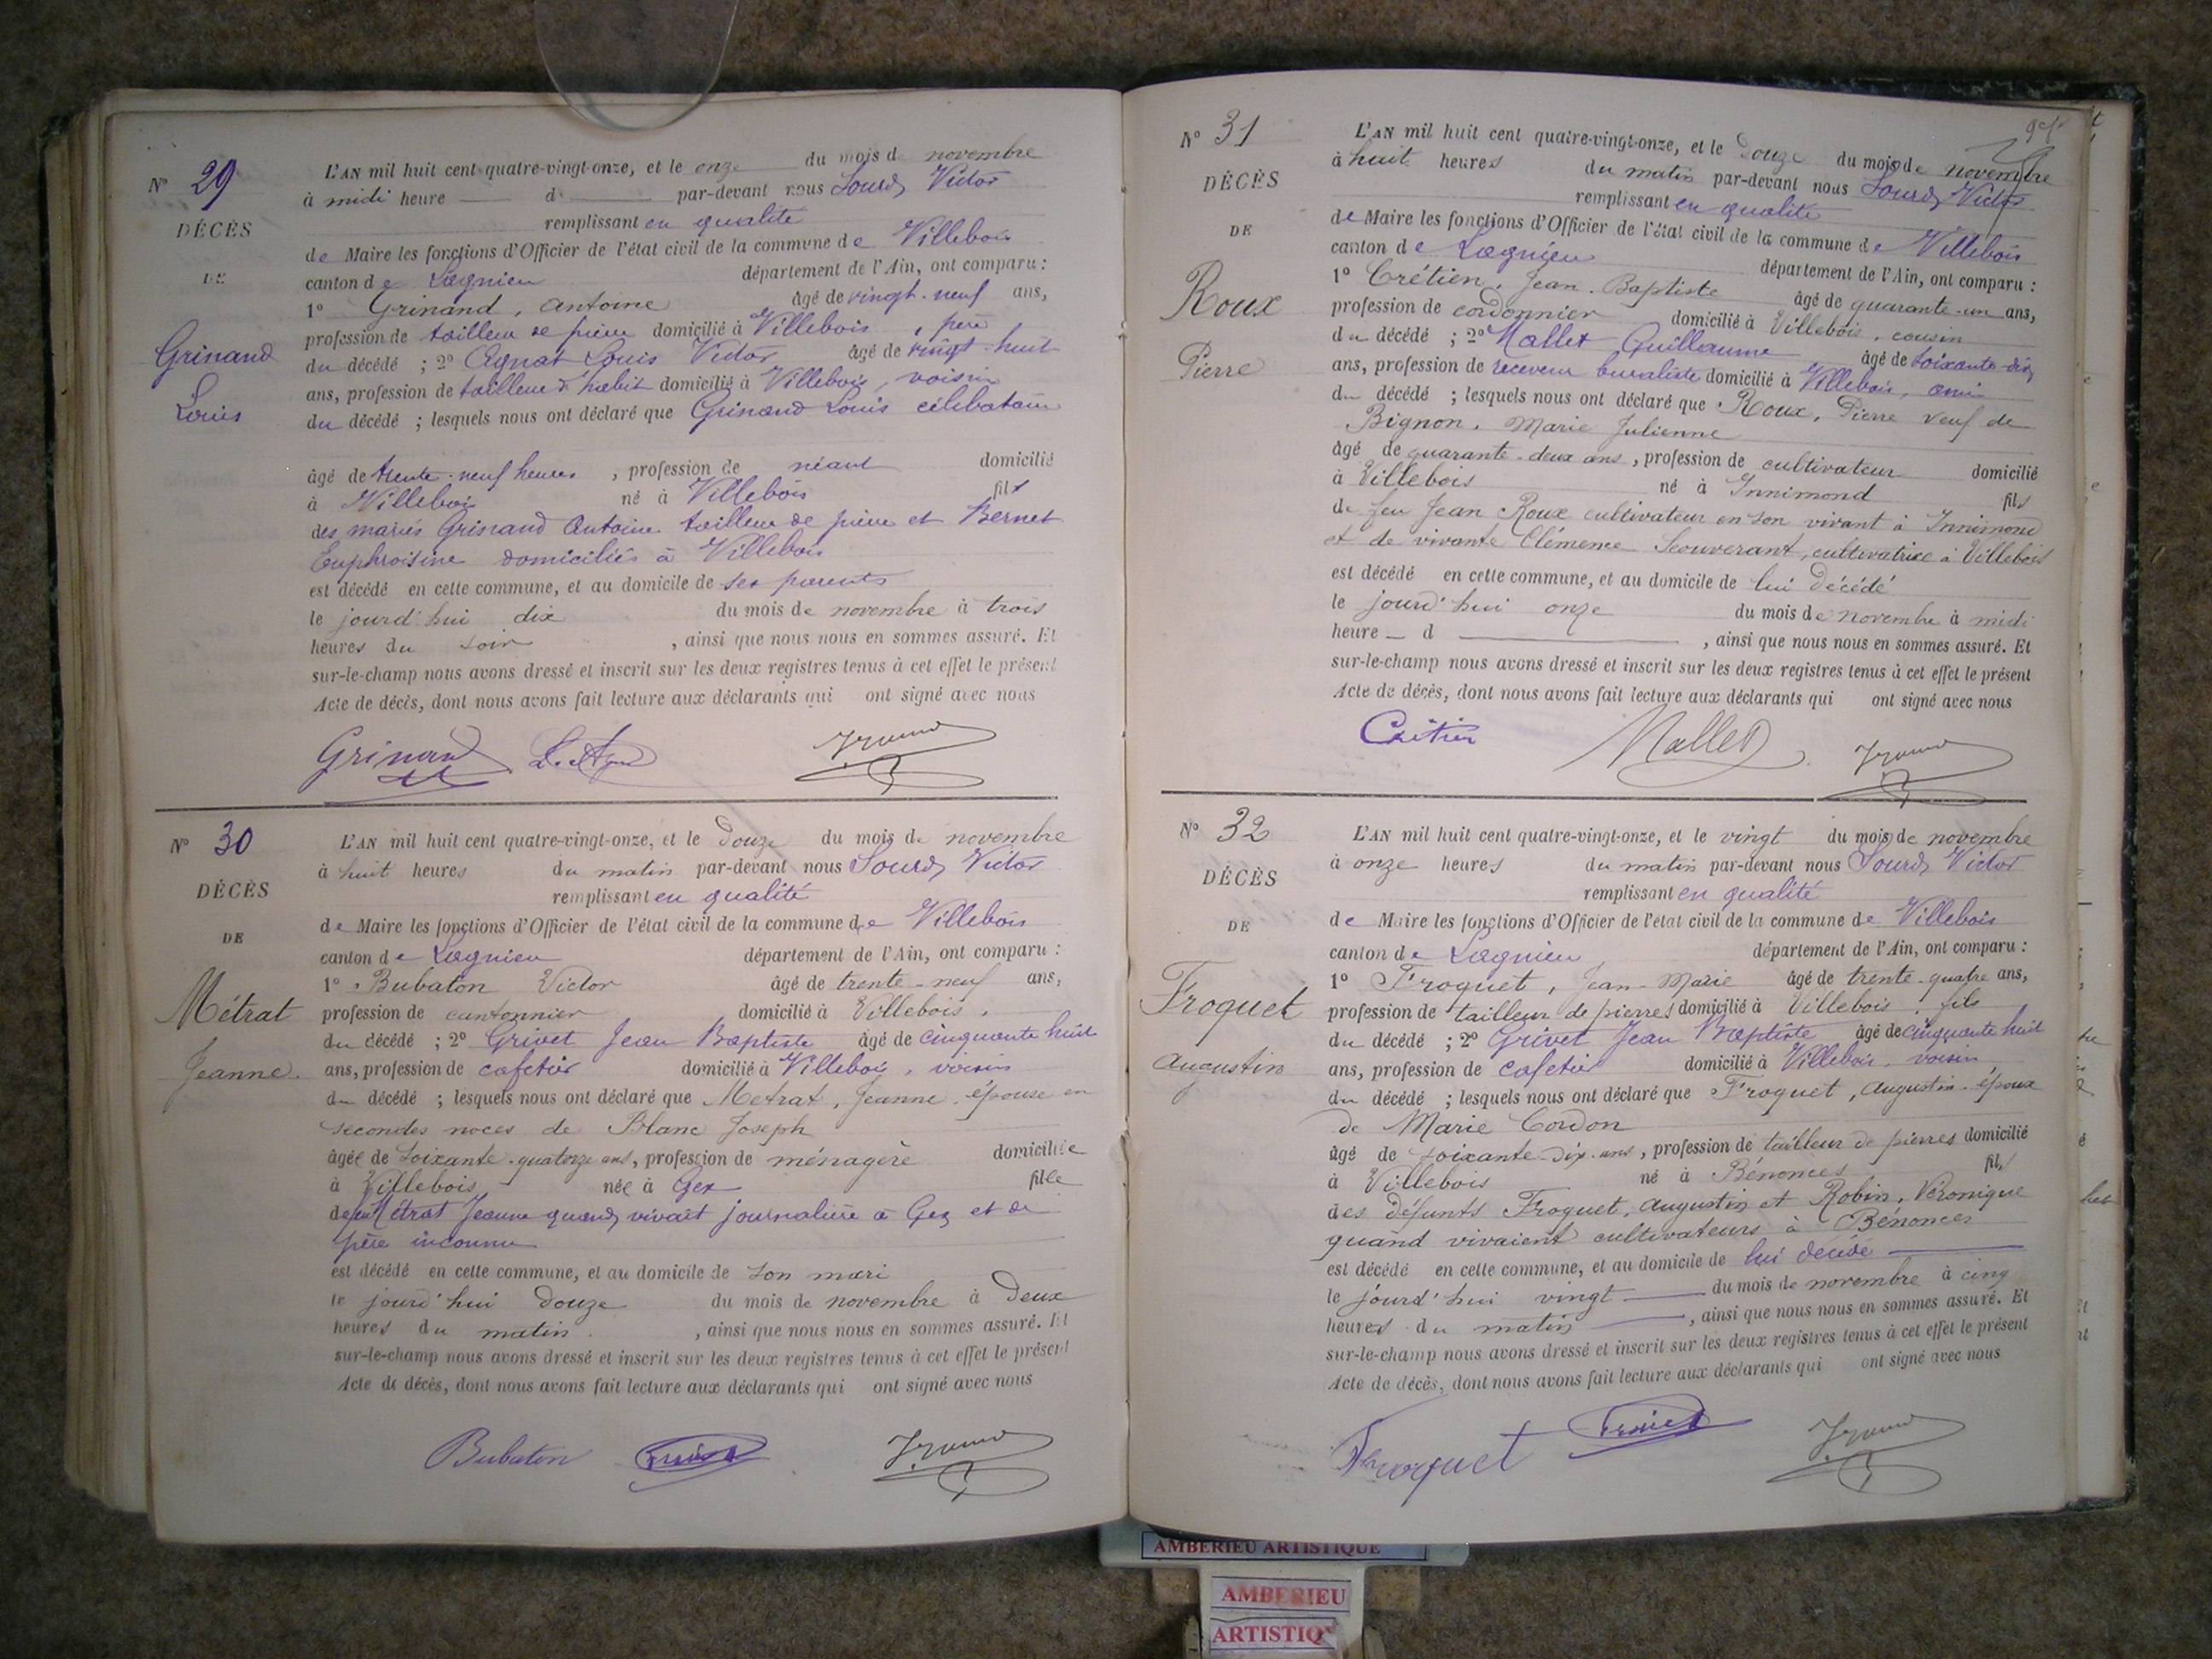 N° 29
DÉCÈS
DE
Grinand
Louis
L'AN mil huit cent quatre-vingt-onze, et le onze du mois d novembre
à midi heure d par-devant nous Sourd, Victor
remplissant en qualité
de Maire les fonctions d'Officier de l'état civil de la commune de Villebois
canton de Lagnieu département de l'Ain, ont comparu :
1° Grinand, Antoine âgé de vingt-neuf ans,
profession de tailleur de pierre domicilié à Villebois, père
du décédé ; 2° Agnat Louis Victor âgé de vingt-huit
ans, profession de tailleur d'habit domicilié à Villebois, voisin
du décédé ; lesquels nous ont déclaré que Grinand Louis célibataire
âgé de trente-neuf heures, profession de néant domicilié
à Villebois né à Villebois fils
des mariés Grinand Antoine tailleur de pierre et Bernet
Euphroisine domiciliés à Villebois
est décédé en cette commune, et au domicile de ses parents
le jourd'hui dix du mois de novembre à trois
heures du soir, ainsi que nous nous en sommes assuré. Et
sur-le-champ nous avons dressé et inscrit sur les deux registres tenus à cet effet le présent
Acte de décès, dont nous avons fait lecture aux déclarants qui ont signé avec nous
Grinand
N° 30
DÉCÈS
DE
Métrat
Jeanne.
L'AN mil huit cent quatre-vingt-onze, et le douze du mois de novembre
à huit heures du matin par-devant nous Sourd, Victor
remplissant en qualité
de Maire les fonctions d'Officier de l'état civil de la commune de Villebois
canton de Lagnieu département de l'Ain, ont comparu :
1° Bubaton Victor âgé de trente-neuf ans,
profession de cantonnier domicilié à Villebois,
du décédé ; 2° Grivet Jean Baptiste âgé de cinquante huit
ans, profession de cafetier domicilié à Villebois, voisin
du décédé ; lesquels nous ont déclaré que Metrat, Jeanne, épouse en
secondes noces de Blanc Joseph
âgée de soixante-quatorze ans, profession de ménagère domiciliée
à Villebois née à Gex fille
de feu Métrat Jeanne quand vivait journalière à Gex et de
père inconnu
est décédé en cette commune, et au domicile de son mari
le jourd'hui douze du mois de novembre à deux
heures du matin, ainsi que nous nous en sommes assuré. Et
sur-le-champ nous avons dressé et inscrit sur les deux registres tenus à cet effet le présent
Acte de décès, dont nous avons fait lecture aux déclarants qui ont signé avec nous
Bubaton
N° 31
DÉCÈS
DE
Roux
Pierre
L'AN mil huit cent quatre-vingt-onze, et le douze du mois de novembre
à huit heures du matin par-devant nous Sourd, Victor
remplissant en qualité
de Maire les fonctions d'Officier de l'état civil de la commune de Villebois
canton de Lagnieu département de l'Ain, ont comparu :
1° Crétien, Jean-Baptiste âgé de quarante-un ans,
profession de cordonnier domicilié à Villebois, cousin
du décédé ; 2° Mallet Guillaume âgé de soixante-dix
ans, profession de receveur buraliste domicilié à Villebois, ami
du décédé ; lesquels nous ont déclaré que Roux, Pierre veuf de
Bignon, Marie Julienne
âgé de quarante-deux ans, profession de cultivateur domicilié
à Villebois né à Innimond fils
de feu Jean Roux cultivateur en son vivant à Innimond
et de vivante Clémence Scouverant, cultivatrice à Villebois
est décédé en cette commune, et au domicile de lui décédé
le jourd'hui onze du mois de novembre à midi
heure d, ainsi que nous nous en sommes assuré. Et
sur-le-champ nous avons dressé et inscrit sur les deux registres tenus à cet effet le présent
Acte de décès, dont nous avons fait lecture aux déclarants qui ont signé avec nous
Mallet
N° 32
DÉCÈS
DE
Froquet
Augustin
L'AN mil huit cent quatre-vingt-onze, et le vingt du mois de novembre
à onze heures du matin par-devant nous Sourd, Victor
remplissant en qualité
de Maire les fonctions d'Officier de l'état civil de la commune de Villebois
canton de Lagnieu département de l'Ain, ont comparu :
1° Froquet, Jean-Marie âgé de trente-quatre ans,
profession de tailleur de pierres domicilié à Villebois, fils
du décédé ; 2° Grivet Jean Baptiste âgé de cinquante huit
ans, profession de cafetier domicilié à Villebois, voisin
du décédé ; lesquels nous ont déclaré que Froquet, Augustin, époux
de Marie Cordon
âgé de soixante-dix-ans, profession de tailleur de pierres domicilié
à Villebois né à Bénonces fils
des défunts Froquet, Augustin et Robin, Véronique
quand vivaient cultivateurs à Bénonces
est décédé en cette commune, et au domicile de lui décédé
le jourd'hui vingt du mois de novembre à cinq
heures du matin, ainsi que nous nous en sommes assuré. Et
sur-le-champ nous avons dressé et inscrit sur les deux registres tenus à cet effet le présent
Acte de décès, dont nous avons fait lecture aux déclarants qui ont signé avec nous
Froquet
AMBERIEU ARTISTIQUE
AMBERIEU
ARTISTIQ